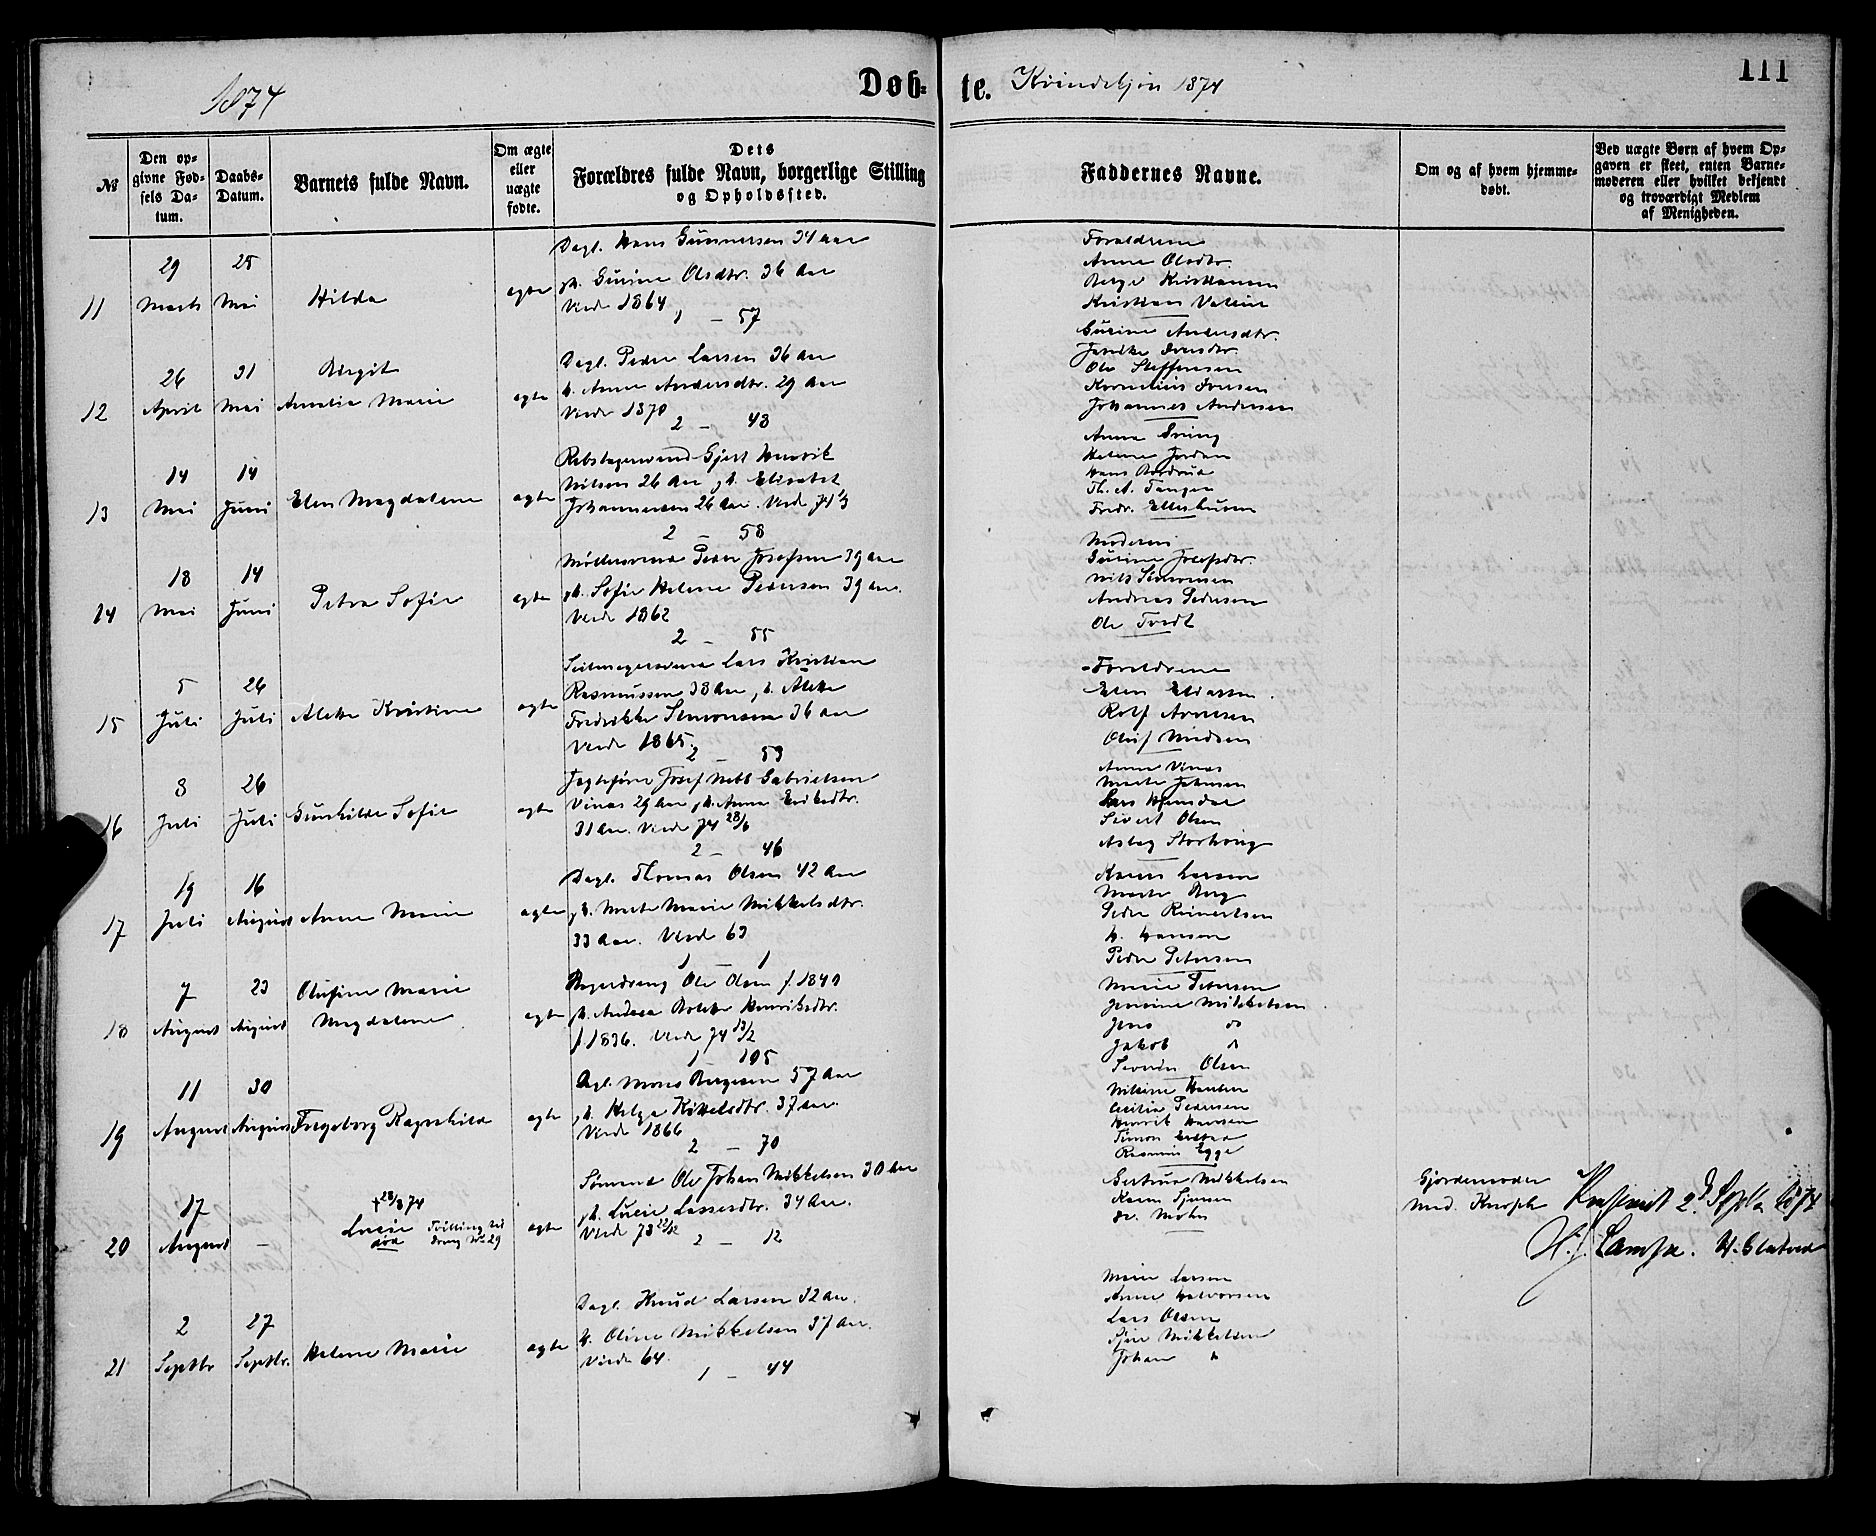 1874
Døb-
te. Kvindekjøn 1874
111
№
Den op-
givne Fød-
sels Da-
tum.
Daabs-
Datum.
Barnets fulde Navn.
Om ægte
eller
uægte
fødte.
Dets
Forældres fulde Navn, borgerlige Stilling
og Opholdssted.
Faddernes Navne.
Om og af hvem hjemme-
døbt.
Ved uægte Børn af hvem Op-
gaven er skeet, enten Barne-
moderen eller hvilket bekjendt
og troværdigt Medlem
af Menigheden.
11
29
Marts
25
Mai
Hilda
ægte
Dagl. Hans Gunnersen 34 Aar
Gurine Olsdtr. 36 Aar
Viede 1864
1 — 57
Forældrene
Anne Olsdtr.
Kristian
12
26
April
31
Mai
Birgit
Amalia Marie
ægte
Dagl. Peder Larsen 36 Aar
h. Anne Andersdtr. 29 Aar
Viede 1870
2 — 48
Gurine Andersdtr.
Ole Steffensen
Kornelius Iversen
Johannes Andersen
13
14
Mai
14
Juni
Elen Magdalene
ægte
Gjert Henrik
Nilsen 26 Aar, h. Elisabet
Johannesen 26 Aar. Viede 74
2 — 58
Anna
Helene
Hans
Th. A. Tangen
Fredr.
14
18
Mai
14
Juni
Petra Sofie
ægte
Møllersvend Peder Josefsen 39 Aar
h. Sofie Helene Pedersen 39 Aar.
Viede 1862
2 — 55
Moderen
Gurine Josefsdtr.
Nils Simonsen
Andreas Pedersen
Ole Tvedt
15
5
Juli
26
Juli
Alette Kristine
ægte
Seilmagersvend Lars Kristian
Rasmussen 38 Aar, h. Alette
Fredrikke Simonsen 36 Aar
Viede 1865.
2 — 53
Forældrene
Elen Eliassen
Rolf Arnesen
Oluf Madsen
16
8
Juli
26
Juli
Gunhilde Sofie
ægte
Jagtefører Josef Gabrielsen
Vinas 29 Aar, h. Anne Eriksdtr.
31 Aar. Viede 74 28/6
2 — 46
Anne Vinas
Marte Johnsen
Lars
Sivert Olsen
Aslag
17
19
Juli
16
August
Anne Marie
ægte
Dagl. Thomas Olsen 42 Aar
h. Marte Marie Mikkelsdtr.
33 Aar. Viede 63
1 — 1
Karen Larsen
Marte Berg
Peder Reinertsen
H. Hansen
Peder Petersen
18
7
August
23
August
Olufine Marie
Magdalene
ægte
Ole Olsen f. 1840
h. Andrea Henriksdtr.
f. 1836. Viede 74 13/2
1 — 105
Marie Petersen
Mikkelsen
Jens do
Jakob do
Severin Olsen
19
11
August
30
August
Ingeborg Ragnhilde
ægte
Dagl. Mons Bergesen 57 Aar
h. Helga Kittelsdtr. 37 Aar.
Viede 1866
2 — 70
Nilsine
Cecilie Pedersen
Henrik Hansen
Simon
Rasmus Egge
20
17
August
—
† 28/8 74
Lucie
død
Tvilling til
Dreng No 29
ægte
Sømand Ole Johan Mikkelsen 30 Aar
h. Lucie Lassesdtr. 34 Aar.
Viede 73
2 — 12
Gertrud Mikkelsen
Karen
Dr. Mohn
Gjordemoder
Mad.
2d Septbr 1874
21
2
Septbr
27
Septbr.
Helene Marie
ægte
Dagl. Knud Larsen 32 Aar.
h. Oline Mikkelsen 37 Aar.
Viede 64.
1 — 44
Marie Larsen
Anne Halvorsen
Lars Olsen
Mikkelsen
Johan